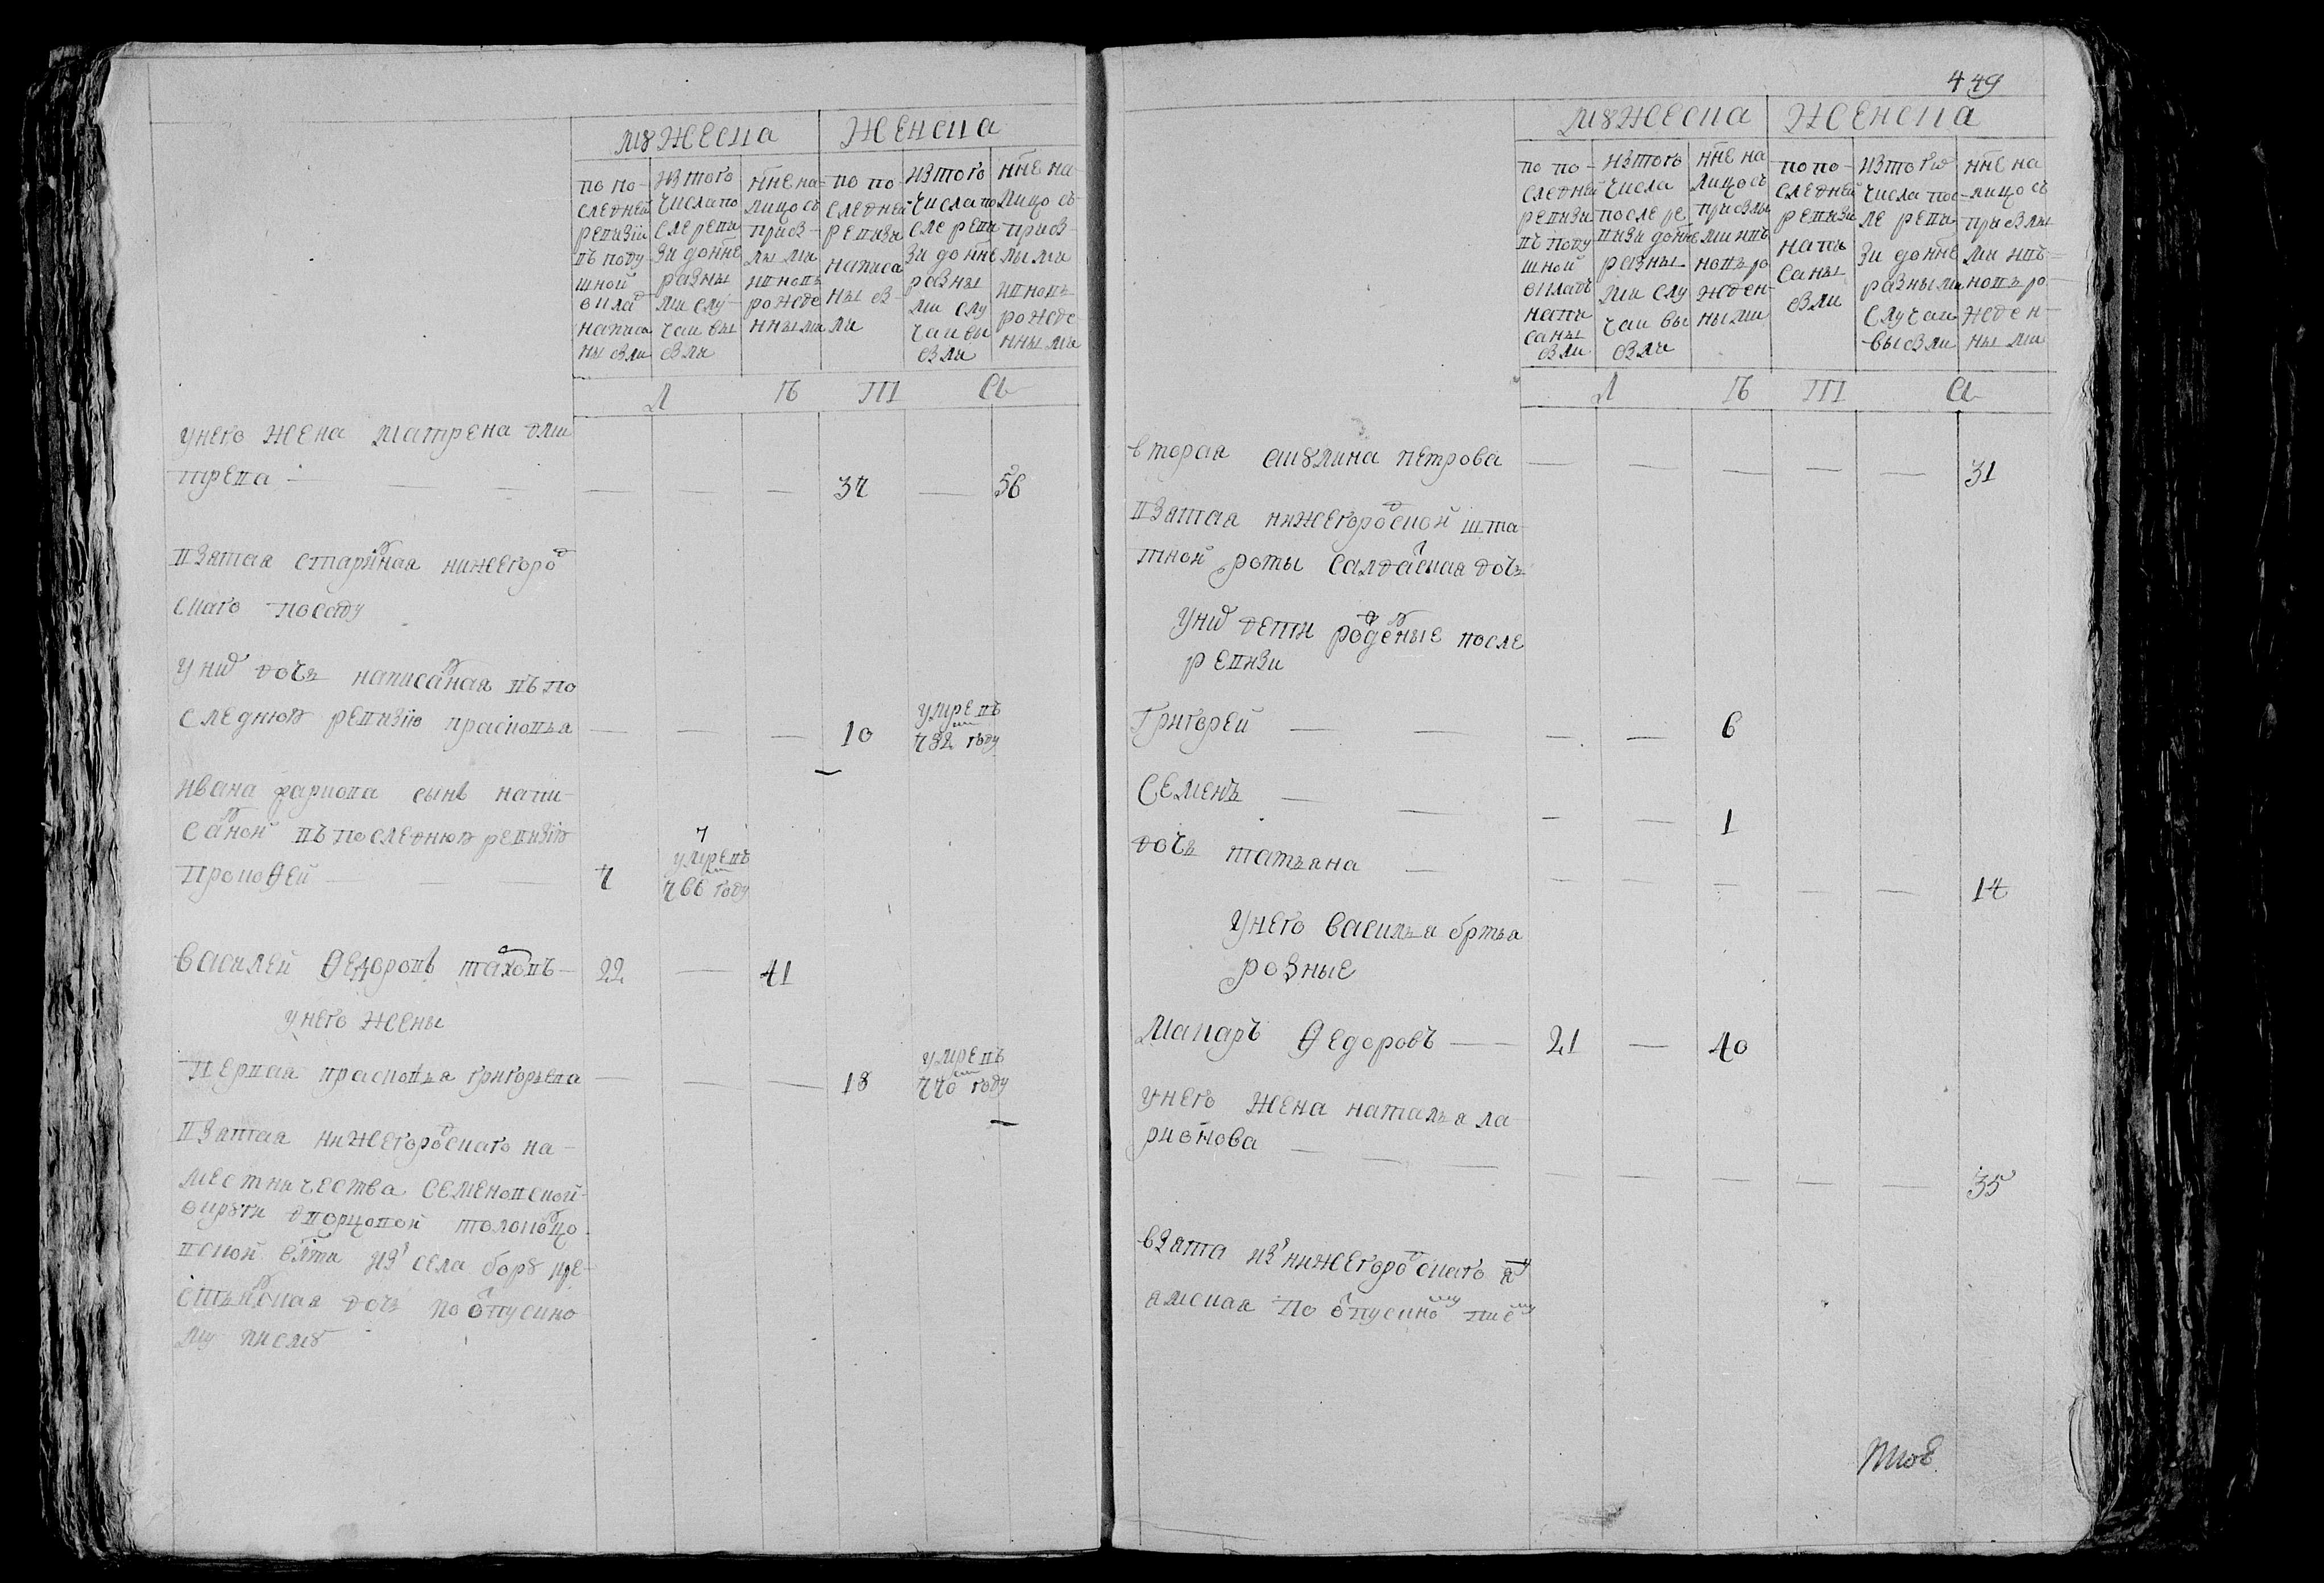 мꙋжеска
женска
по по-
следней
ревизiи
въ поду
шной
окладъ
написа
ны были
из того
числа по
сле реви
зи до нне
разны
ми слу
чаи вы
были
нне на=
лицо съ
прибы-
лы ми
и вновь
рожде
нными
по по-
следней
ревизи
написа
ны бы
ли
из того
числа по
сле реви
зи до нне
разны
ми слу
чаи вы
были
нне на-
лицо съ
прибы-
лы ми
и вновь
рожде
нны ми
Л
В
III
С
у него жена матрена дми
трева — — — — — — 37 — 56
взятая старинная нижегород
скаго посаду
у них дочь написанная въ по
следнюю ревизiю прасковья — — — 10 умре въ
782м году
ивана фариова сынъ напи-
санной въ последнюю ревизiю
Прокофей — — — 7 7
умре въ
766м году
василей Ѳедоровъ таховъ — 22 — 41
у него жены
первая прасковья григорьева — — — 18 умре въ
770м году
взятая нижегородскаго на-
местничества семеновской
окрꙋги дворцовой толоконцо
вской волости из села борꙋ кре-
стьянская дочь по отпускно
му писмꙋ
449
мꙋжеска
женска
по по-
следней
ревизи
въ поду
шной
окладъ
напи
саны
были
из того
числа
после ре
визи до нне
разны
ми слу
чаи вы
были
нне на
лицо съ
прибылы
ми и въ
новь ро
жден-
ными
по по-
следней
ревизи
напи
саны
были
из того
числа пос-
ле реви
зи до нне
разными
случаи
выбыли
нне на
лицо съ
прибылы
ми и въ=
новь ро
жден-
ны ми
Л
В
III
С
вторая акꙋлина петрова — — — — — 31
взятая нижегородской шта
тной роты салдатская дочь
у них дети рожденые после
ревизи
Григорей — — — — 6
Семенъ — — — — 1
дочь татьяна — — — — — — 14
у него василья братья
родные
Макаръ Ѳедоровъ — 21 — 40
у него жена наталья ла
рионова — — — — — — — — 35
взята из нижегородскаго яму
ямская по отпускному писму